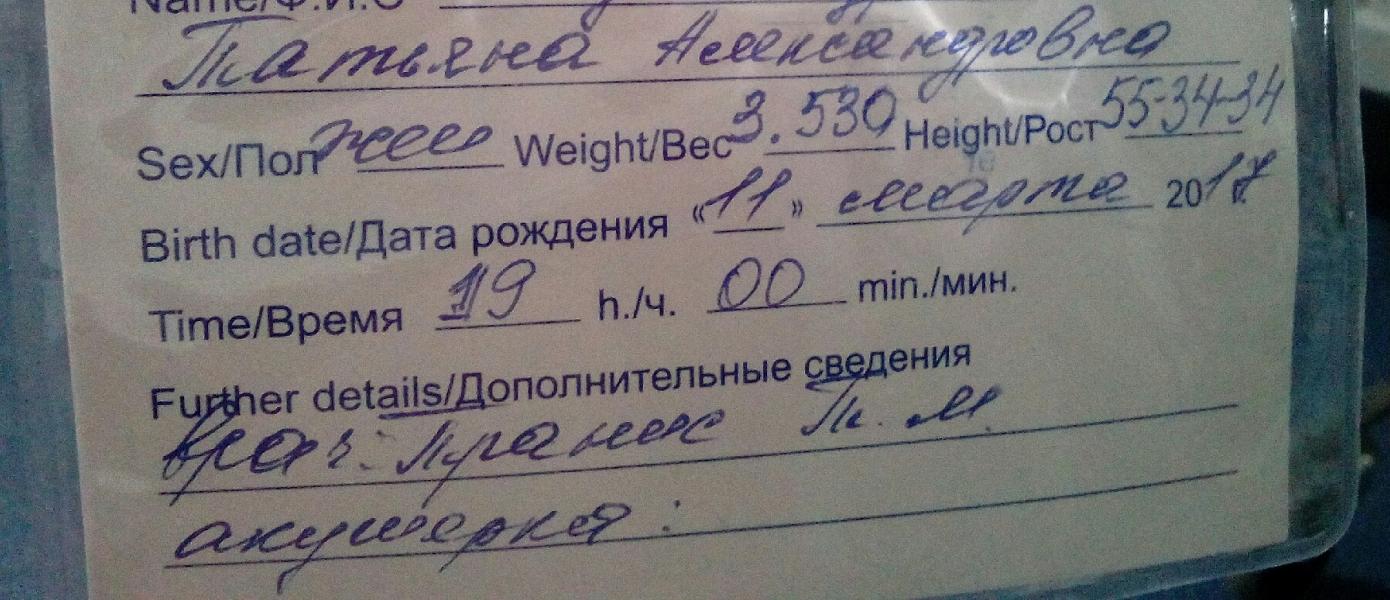 Name/Ф.И.О
Татьяна Александровна
Sex/Пол жен Weight/Вес 3.530 Height/Рост 55-34-34
Birth date/Дата рождения «11» марта 2017
Time/Время 19 h./ч. 00 min./мин.
Further details/Дополнительные сведения
врач: П. М.
акушерка: